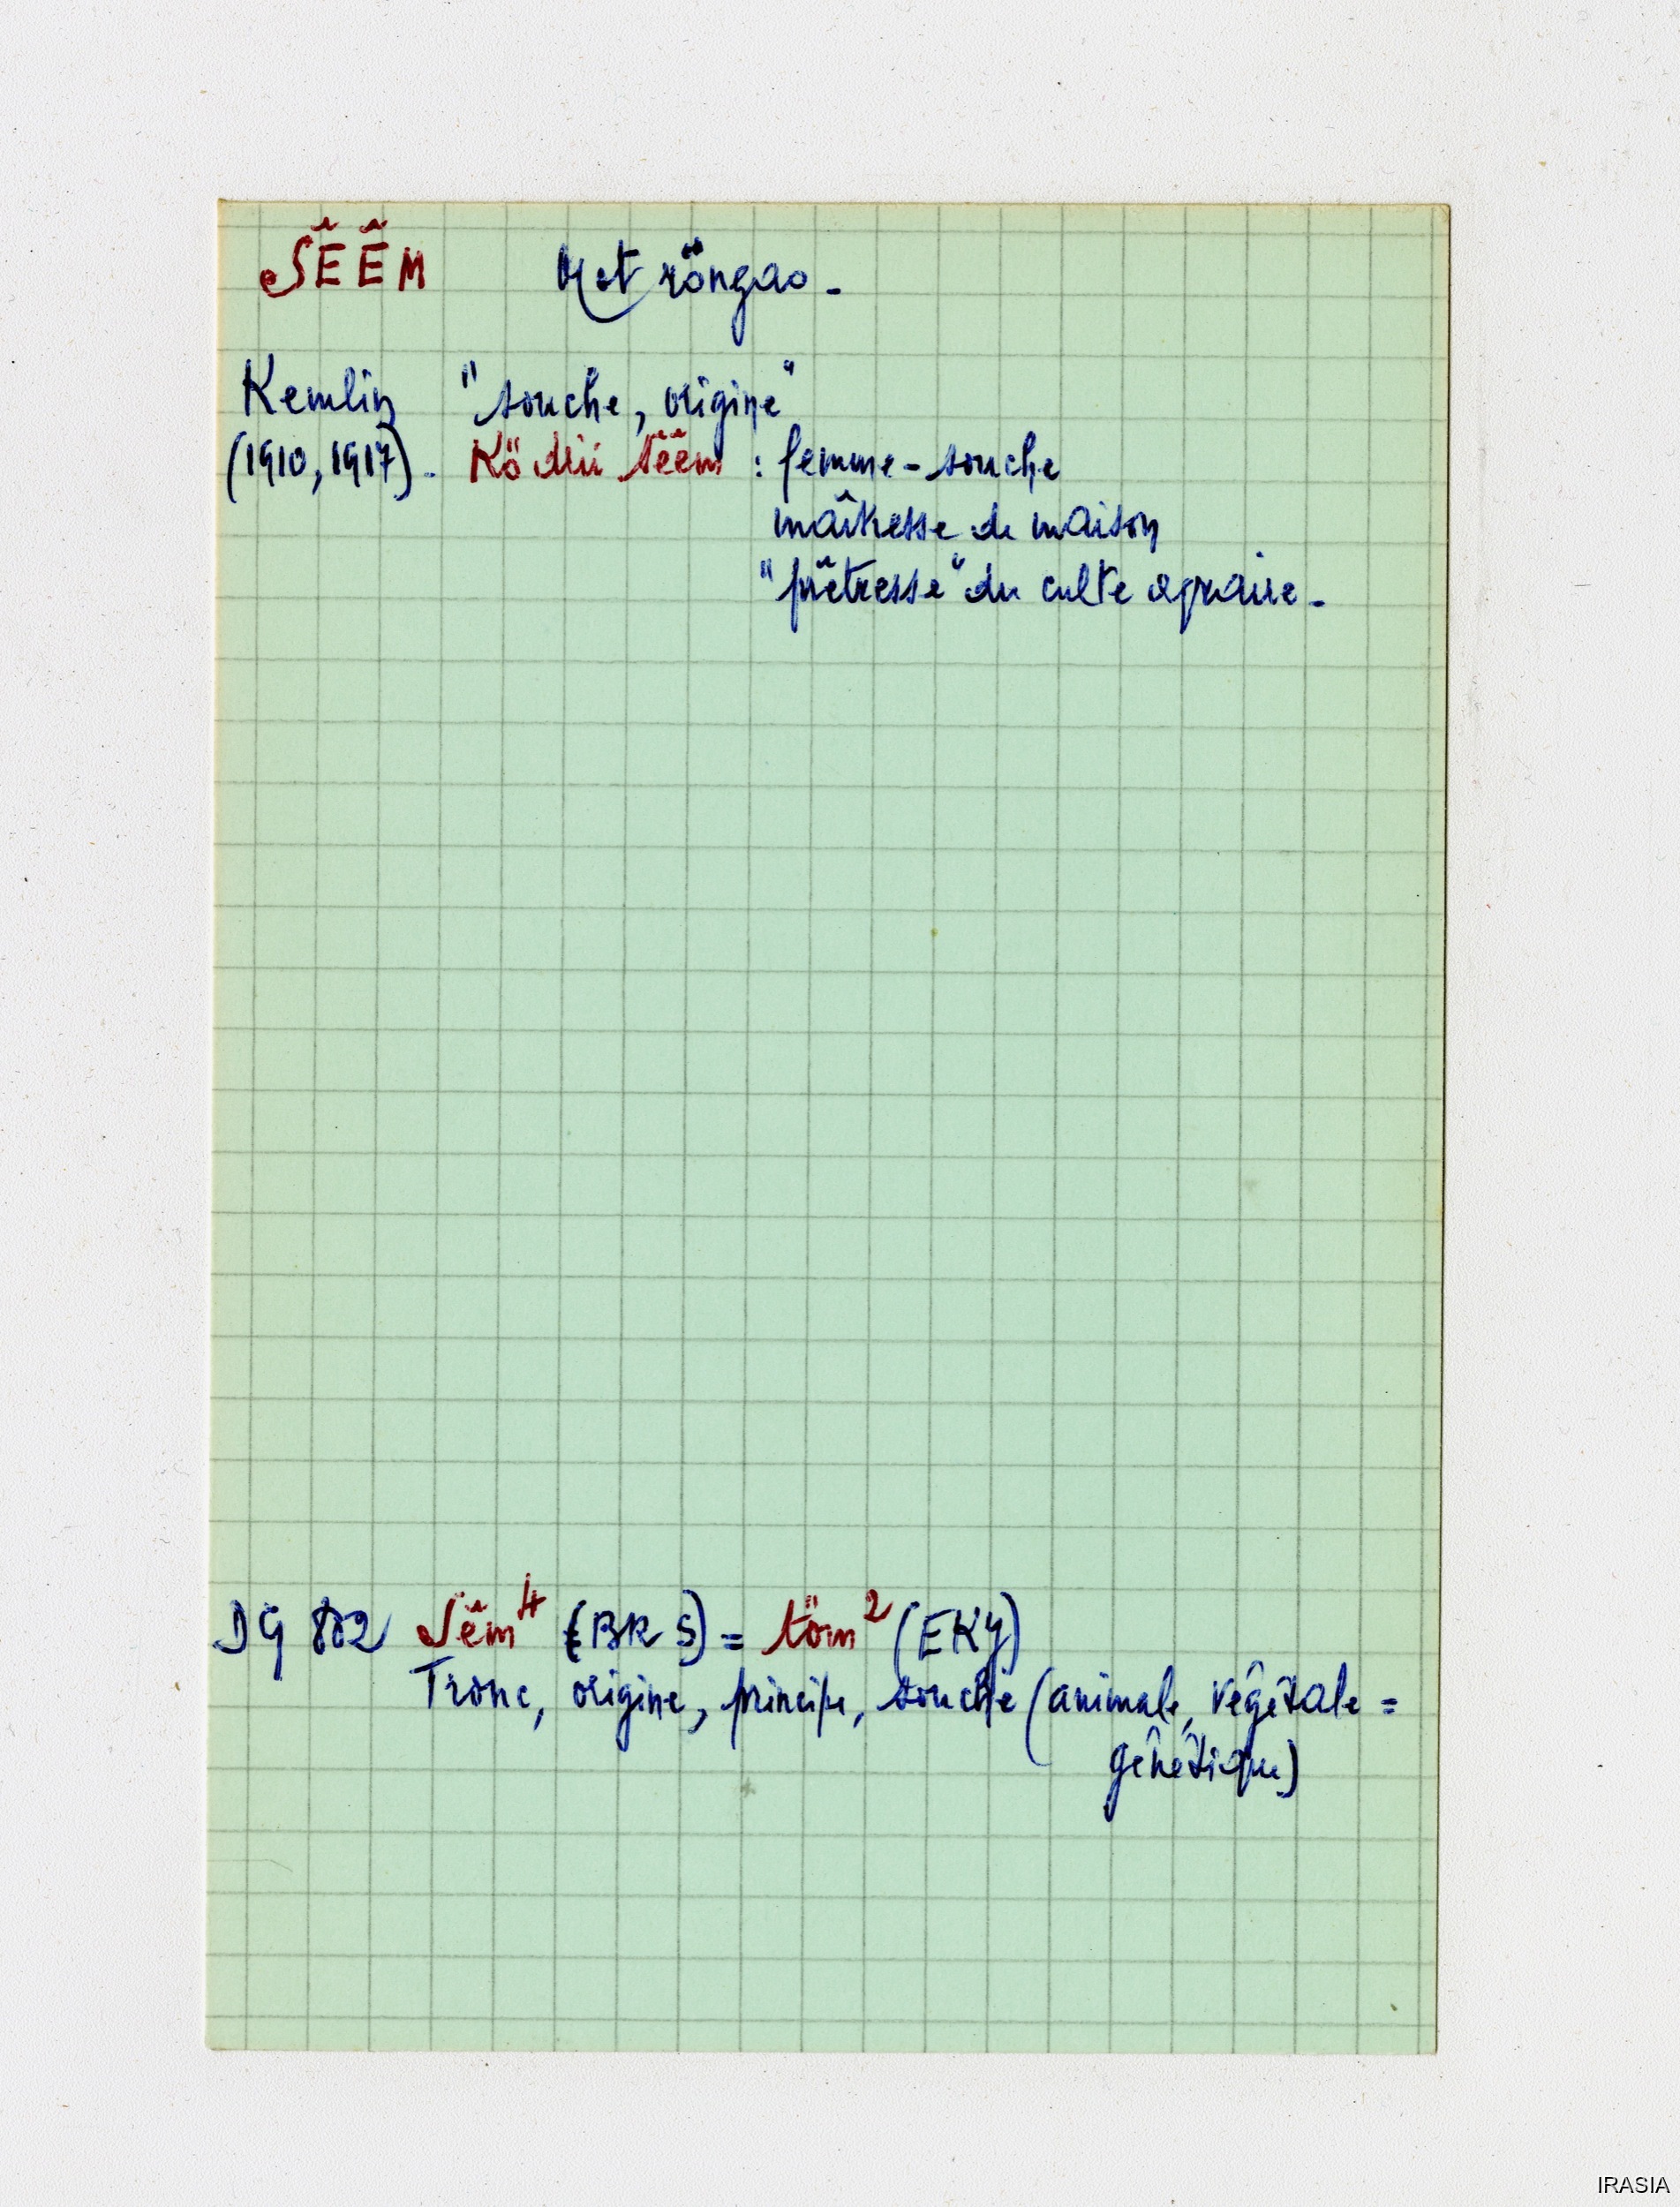 SÊÊM Mot röngao -
Kemlin "souche, origine"
(1910, 1917). Ködrii Sêêm : femme-souche
maîtresse de maison
"prêtresse" du culte agraire -
DG 882 Sêm⁴ (BR S) = töm² (EKY)
Tronc, origine, principe, souche (animale, végétale =
génétique)
IRASIA